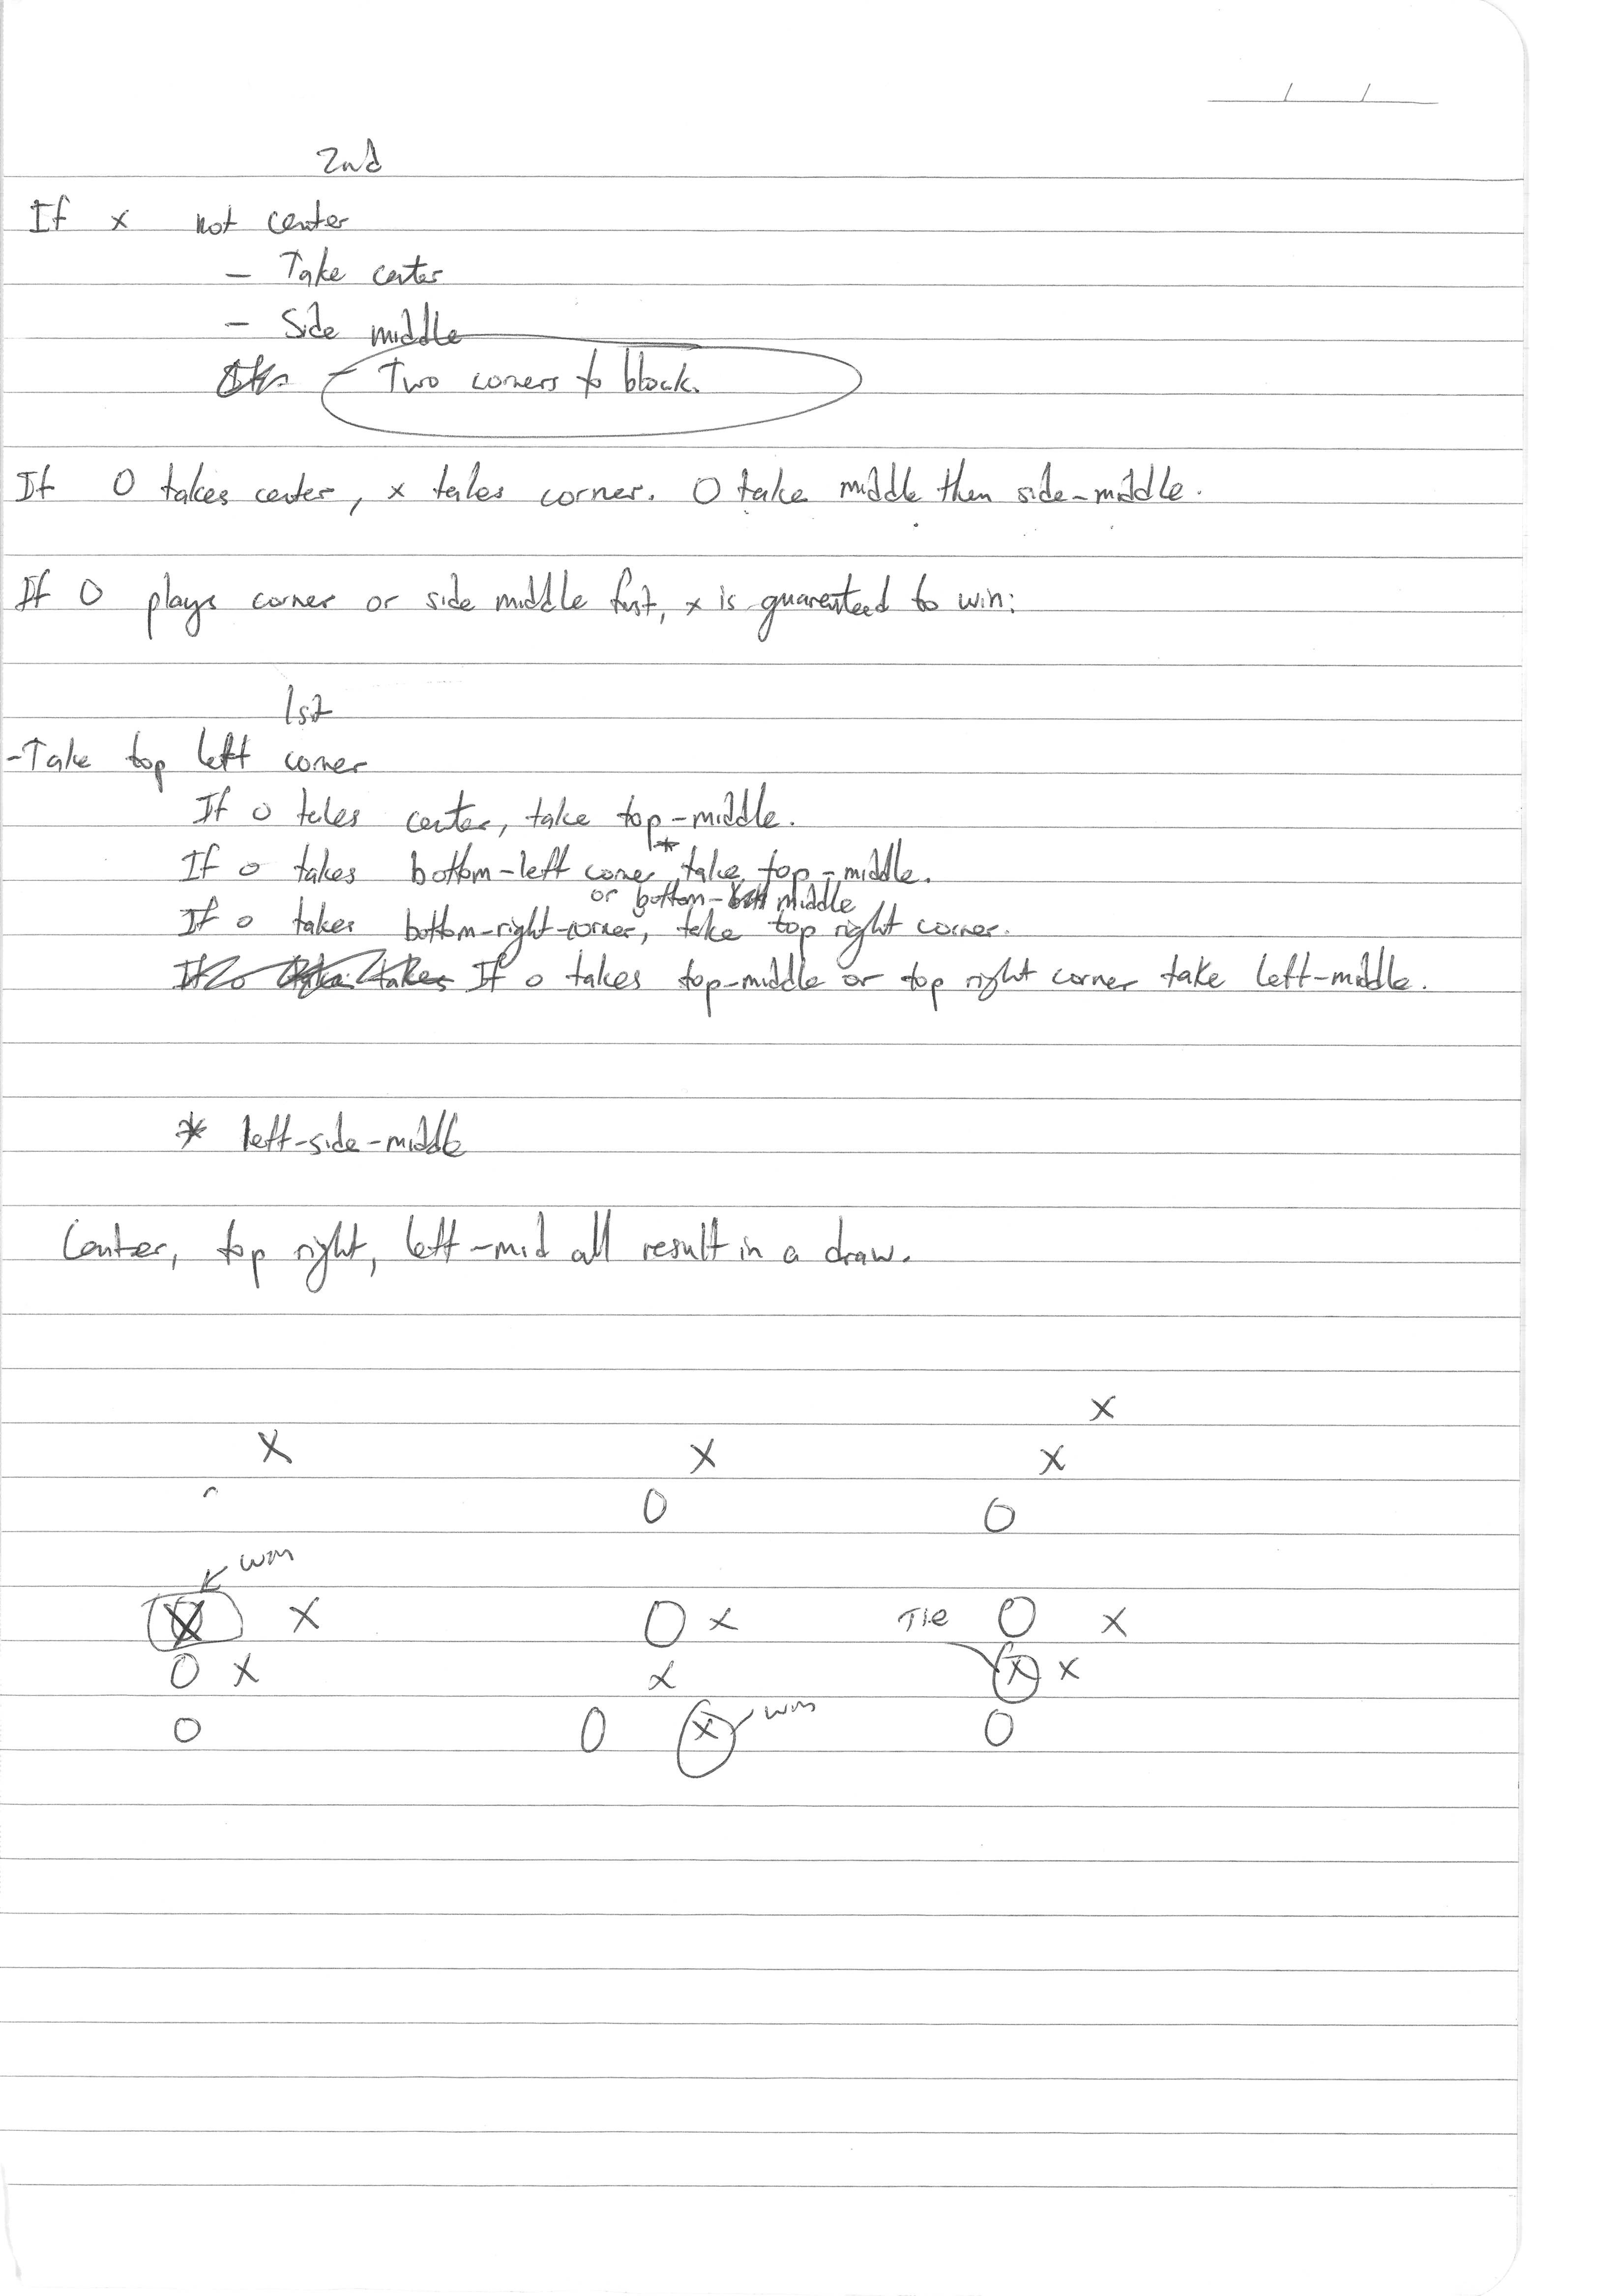 2nd
If x not center
- Take center
- Side middle
- Two corners to block.
If O takes center, x takes corner. O take middle then side-middle.
If O plays corner or side middle first, x is guarenteed to win:
1st
-Take top left corner
If o takes center, take top-middle.
If o takes bottom-left corner,* take top-middle.
or bottom- middle
If o takes bottom-right-corner, take top right corner.
If o takes top-middle or top right corner take left-middle.
* left-side-middle
Center, top right, left-mid all result in a draw.
x
X X x
O O
win
X X O x Tie O x
O x x x x
win
O O x O